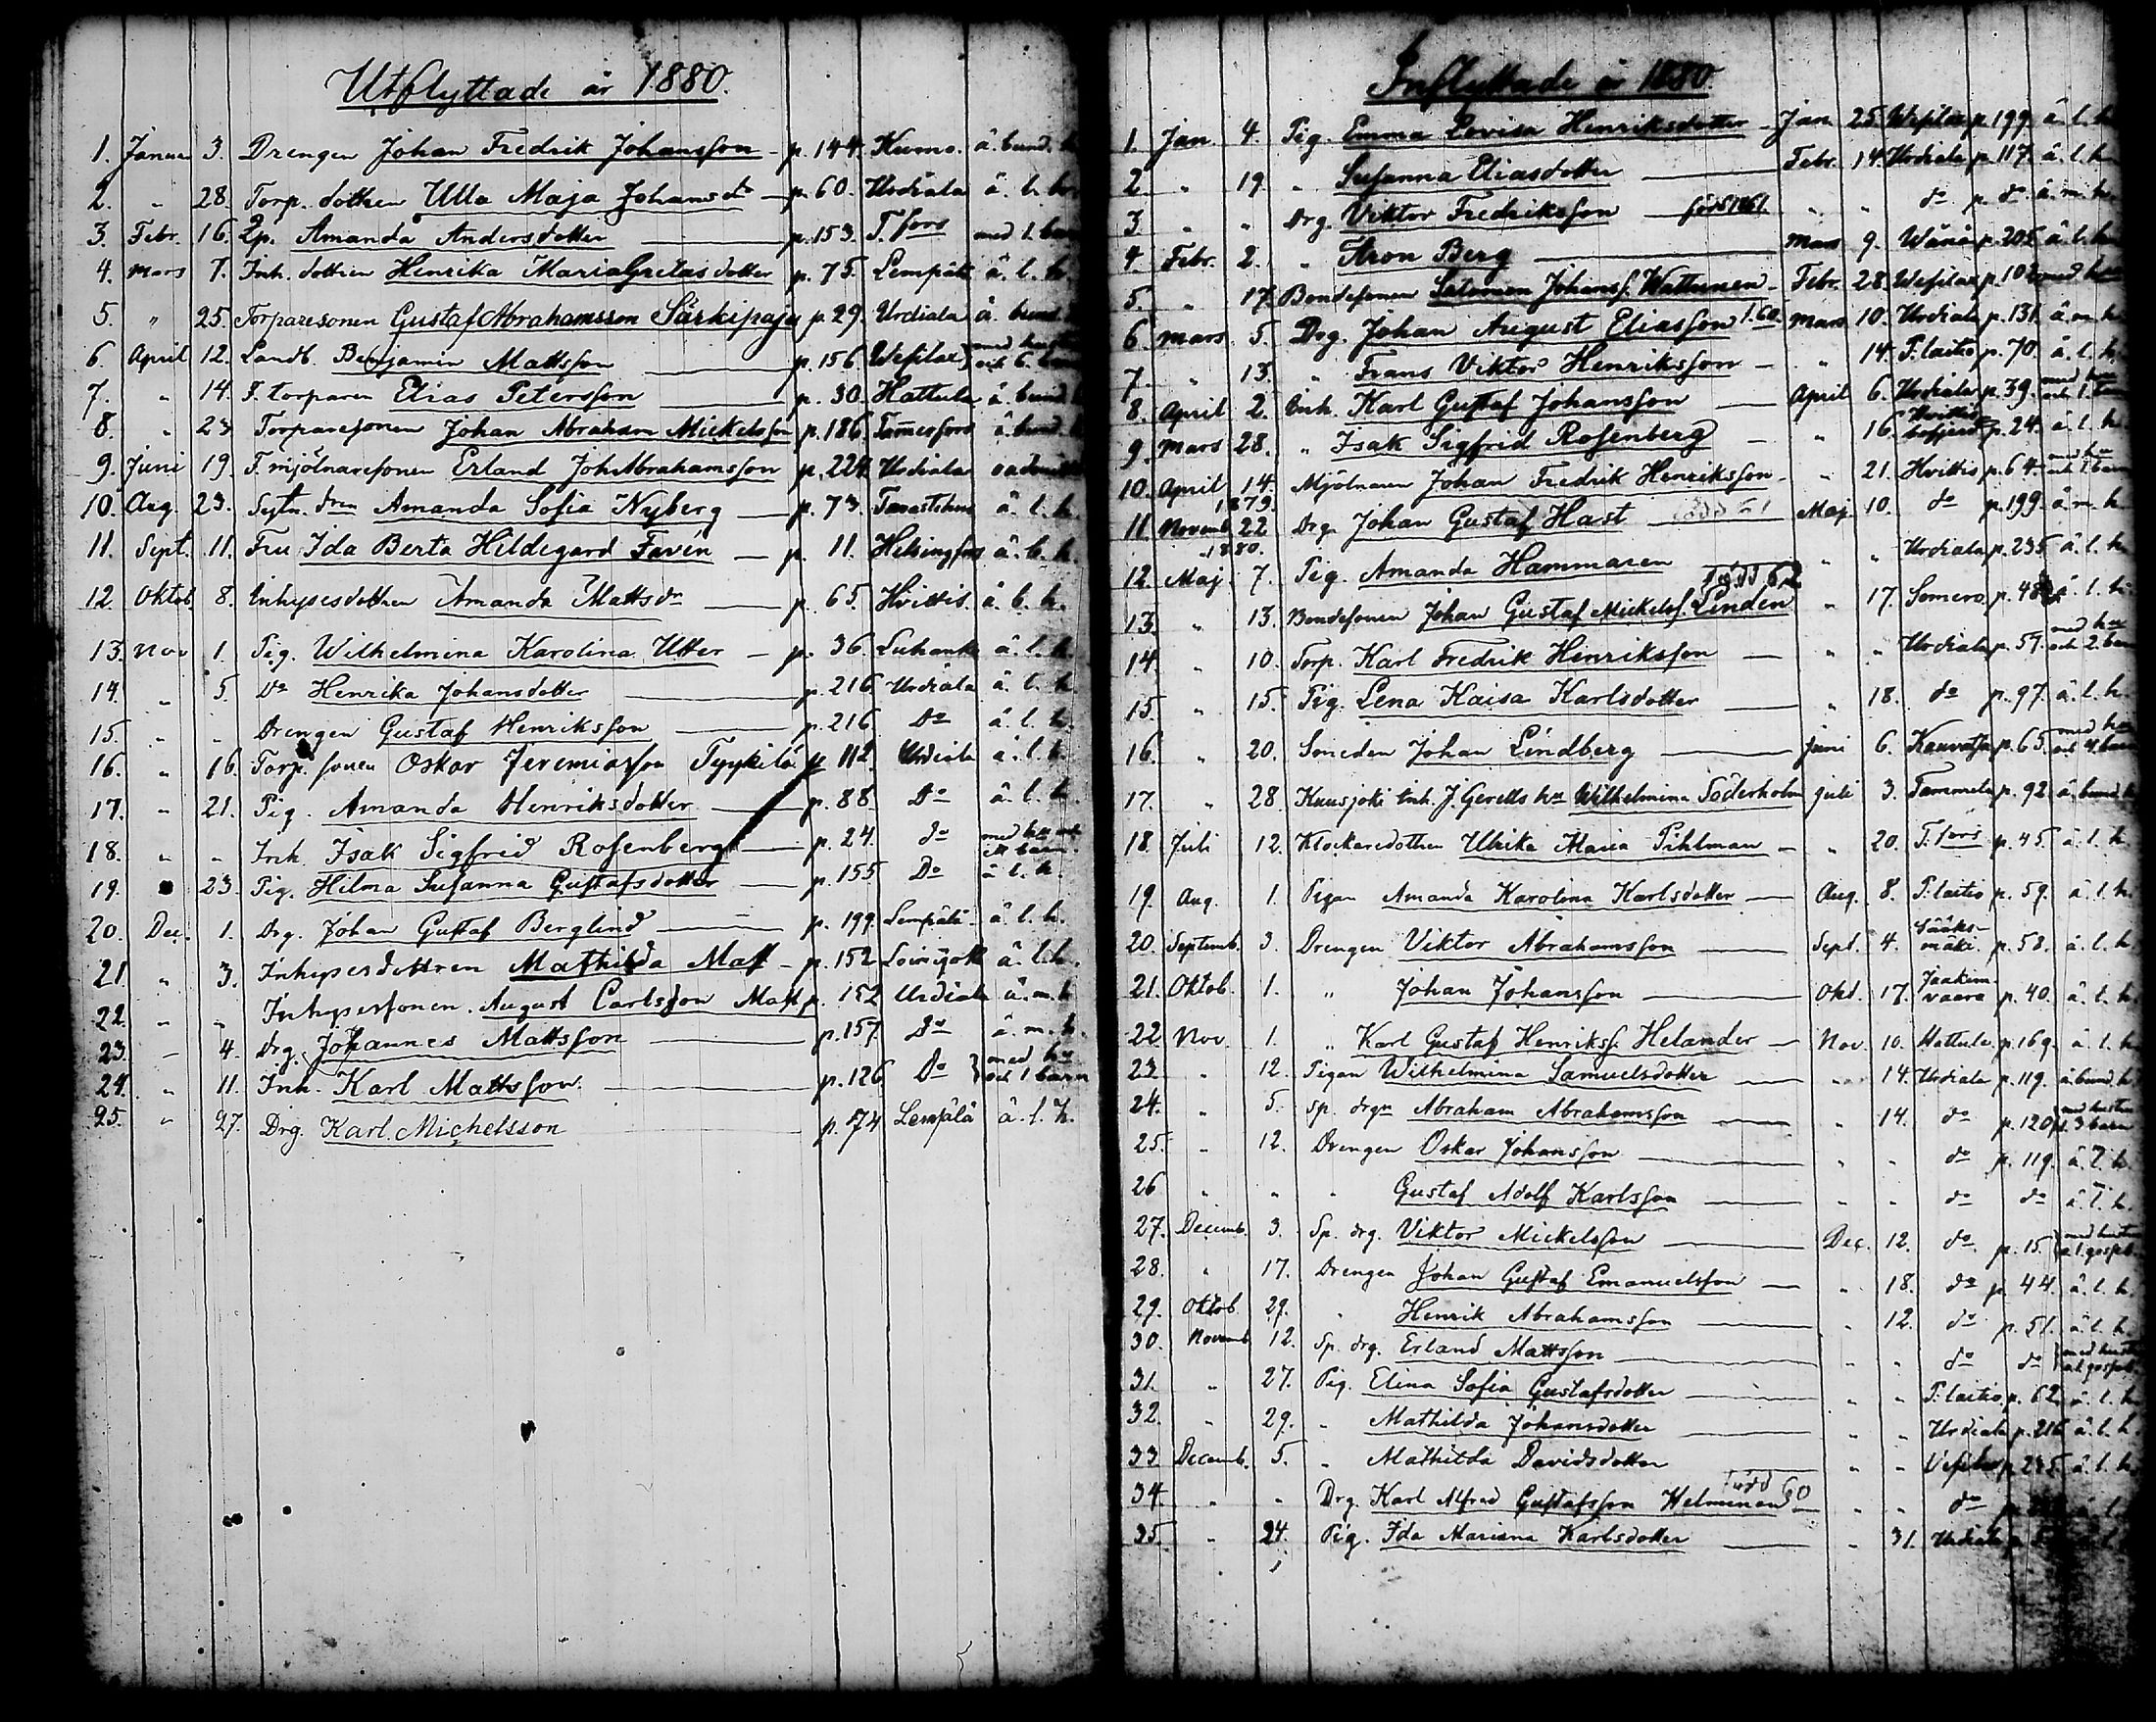 Utflyttade år 1880.
1. Januar 3. Drengen Johan Fredrik Johansson p. 144. Kumo. ä. bund. h
2. " 28. Torp. dottren Ulla Maja Johansdr p. 60. Urdiala ä. l. h.
3. Febr. 16. Qp. Amanda Andersdotter p. 153. T.fors med 1. barn
4. Mars 7. Inh. dottren Henrika Maria Gretasdotter p. 75. Lempälä ä. l. h.
5. " 25. Torparesonen Gustaf Abrahamsson Särkipaja p. 29. Urdiala ä. bund.
6 April 12. Landb. Benjamin Mattsson p. 156 Wesilax med hustru och 6. barn
7. " 14. F. torparen Elias Petersson p. 30. Hattula ä. bund
8. " 23 Torparesonen Johan Abraham Mickelsson p. 186. Tammerfors ä. bund.
9. Juni 19. F. mjölnaresonen Erland Joh Abrahamsson p. 224. Urdiala oadmitt
10. Aug. 23. Sytn. drn Amanda Sofia Nyberg p. 73. Tavastehus ä. l. h.
11. Sept. 11. Fru Ida Berta Hildegard Favén p. 11. Helsingfors ä. l. h.
12. Oktob 8. Inhysesdottren Amanda Mattsdr p. 65. Hvittis. ä. l. h.
13. Nov 1. Pig. Wilhelmina Karolina Utter p. 36. Luhanka ä. l. h.
14. " 5. Do Henrika Johansdotter p. 216. Urdiala ä. l. h.
15. " " Drengen Gustaf Henriksson p. 216 Do ä. l. h.
16. " 16. Torp. sonen Oskar Jeremiasson Tyykilä p 112. Urdiala ä. l. h.
17. " 21. Pig. Amanda Henriksdotter p. 88. Do ä. l. h.
18. " " Inh. Isak Sigfrid Rosenberg p. 24. do med hu och barn
19. 23. Pig. Hilma Susanna Gustafsdotter p. 155 Do ä. l. h.
20. Dec. 1. Drg. Johan Gustaf Berglind p. 199. Lempälä ä. l. h.
21 " 3. Inhysesdottren Mathilda Matt p. 152 Loimijok ä. l. h.
22. " " Inhysesonen. August Carlsson Matt p. 152 Urdiala ä. m. h
23. - 4. Drg. Johannes Mattsson p. 157. Do ä. m. h.
24. " 11. Inh. Karl Mattsson. p. 126 Do med hu och 1 barn
25. " 27. Drg. Karl Michelsson p. 74 Lempälä ä. l. h.
Inflyttade år 1880.
1 Jan. 4. Pig. Emma Lovisa Henriksdotter Jan 25. Wesilax p. 199. ä. l. h
2 " 19. " Susanna Eliasdotter Febr. 14. Urdiala p. 117. ä. l. h
3 " " Drg. Viktor Fredriksson född 1861. " " do p. do ä. m. h.
4. Febr. 2. " Aron Berg Mars 9. Wånå p. 205 ä. l. h
5. " 17. Bondesonen Salomon Johanss. Wattunen Febr. 28. Wesilax p. 10 med hu
6. Mars 5. Drg. Johan August Eliasson 1.60. Mars 10. Urdiala p. 131. ä. m. h.
7 " 13. " Frans Viktor Henriksson " 14. P.laitio p. 70. ä. l. h.
8. April 2. Inh. Karl Gustaf Johansson April 6. Urdiala p. 39. med hu och 1. barn
9. Mars 28. " Isak Sigfrid Rosenberg " 16. Hvittis p. 24. ä. l. h.
10. April 14. Mjölnaren Johan Fredrik Henriksson " 21. Hvittis p. 64. med hu och 1 barn
1879.
11. Novemb 22 Drg. Johan Gustaf Hast född 51 Maj. 10. do p. 199. ä. m. h
1880.
12. Maj. 7. Pig. Amanda Hammaren " " Urdiala p. 235 ä. l. h.
född 62
13. " 13. Bondesonen Johan Gustaf Mickelss. Linden " 17. Somero p. 48 ä. l. h.
14. " 10. Torp. Karl Fredrik Henriksson " " Urdiala p. 57. med hu och 2. barn
15. " 15. Pig. Lena Kaisa Karlsdotter " 18. do p. 97. ä. l. h.
16. " 20. Smeden Johan Lindberg Juni 6. Kauvatsa p. 65. med hu och 4. barn
17. " 28. Kuusjoki Inh. J. Geretts hu Wilhelmina Söderholm Juli 3. Tammela p. 92. ä. bund. h
18. Juli 12. Klockaredottren Ulrika Maria Pihlman " 20. T.fors p. 45. ä. l. h.
19. Aug. 1. Pigan Amanda Karolina Karlsdotter Aug. 8. P.laitio p. 59. ä. l. h.
20. Septemb. 3. Drengen Viktor Abrahamsson Sept. 4. Sääksmäki p. 58. ä. l. h.
21. Oktob. 1. " Johan Johansson Okt. 17. Jaakimvaara p. 40. ä. l. h.
22 Nov. 1. " Karl Gustaf Henrikss. Helander Nov. 10. Hattula p. 169. ä. l. h
23. " 12. Pigan Wilhelmina Samuelsdotter " 14. Urdiala p. 119. ä. bund. h
24. " 5. Sp. drgn Abraham Abrahamsson " 14. do p. 120 med hustru o. 3 barn
25. " 12. Drengen Oskar Johansson " " do p. 119. ä. l. h.
26 " " " Gustaf Adolf Karlsson " " do do ä. l. h.
27. Decemb. 3. Sp. drg. Viktor Mickelsson Dec. 12. do p. 15.
28. " 17. Drengen Johan Gustaf Emanuelsson " 18. do p. 44. ä. l. h.
29. Oktob 29. " Henrik Abrahamsson " 12. do p. 51. ä. l. h
30. Novemb 12. Sp. drg. Erland Mattsson " " do do
31. " 27. Pig. Elina Sofia Gustafsdotter " " P.laitio p. 62. ä. l. h
32. " 29. " Mathilda Johansdotter " " Urdiala p. 216 ä. l. h.
33 Decemb. 5. " Mathilda Davidsdotter " " Vesilax p. 235. ä. l. h.
34. " " Drg. Karl Alfred Gustafsson Helminen född 60 " " do
35. " 24. Pig. Ida Mariana Karlsdotter " 31. Urdiala